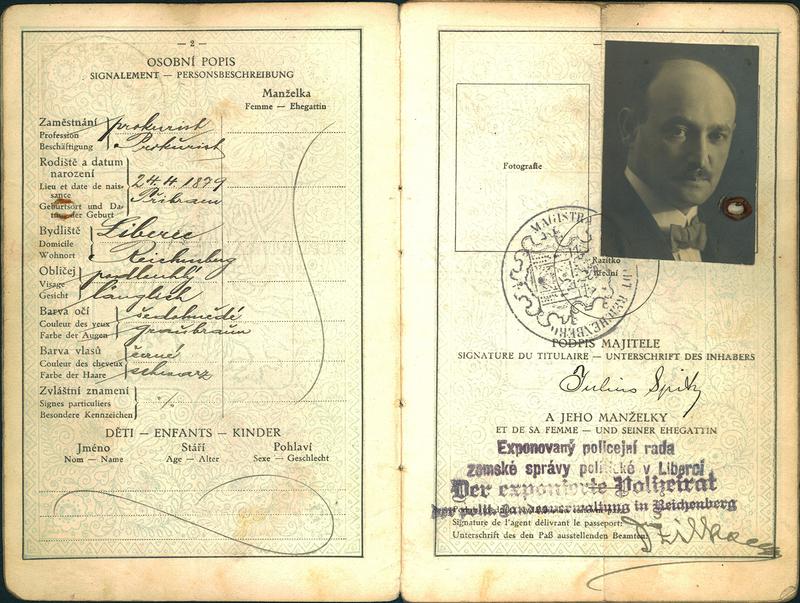 — 2 —
OSOBNÍ POPIS
SIGNALEMENT — PERSONSBESCHREIBUNG
Manželka
Femme — Ehegattin
Zaměstnání prokurist
Profession
Beschäftigung Prokurist
Rodiště a datum
narození 24.4.1879
Lieu et date de nais-
sance Přibram
Geburtsort und Da-
tum der Geburt
Bydliště Liberec
Domicile
Wohnort Reichenberg
Obličej podlouhlý
Visage
Gesicht länglich
Barva očí šedohnědé
Couleur des yeux
Farbe der Augen graubraun
Barva vlasů černé
Couleur des cheveux
Farbe der Haare schwarz
Zvláštní znamení
Signes particuliers ./.
Besondere Kennzeichen
DĚTI — ENFANTS — KINDER
Jméno Stáří Pohlaví
Nom — Name Age — Alter Sexe — Geschlecht
Fotografie
MAGISTRA
REICHENBERG
Razítko
úřední
PODPIS MAJITELE
SIGNATURE DU TITULAIRE — UNTERSCHRIFT DES INHABERS
Julius Spitz
A JEHO MANŽELKY
ET DE SA FEMME — UND SEINER EHEGATTIN
Exponovaný policejní rada
zemské správy politické v Liberci
Der exponierte Polizeirat
der polit. Landesverwaltung in Reichenberg
Signature de l'agent délivrant le passeport:
Unterschrift des den Paß ausstellenden Beamten: